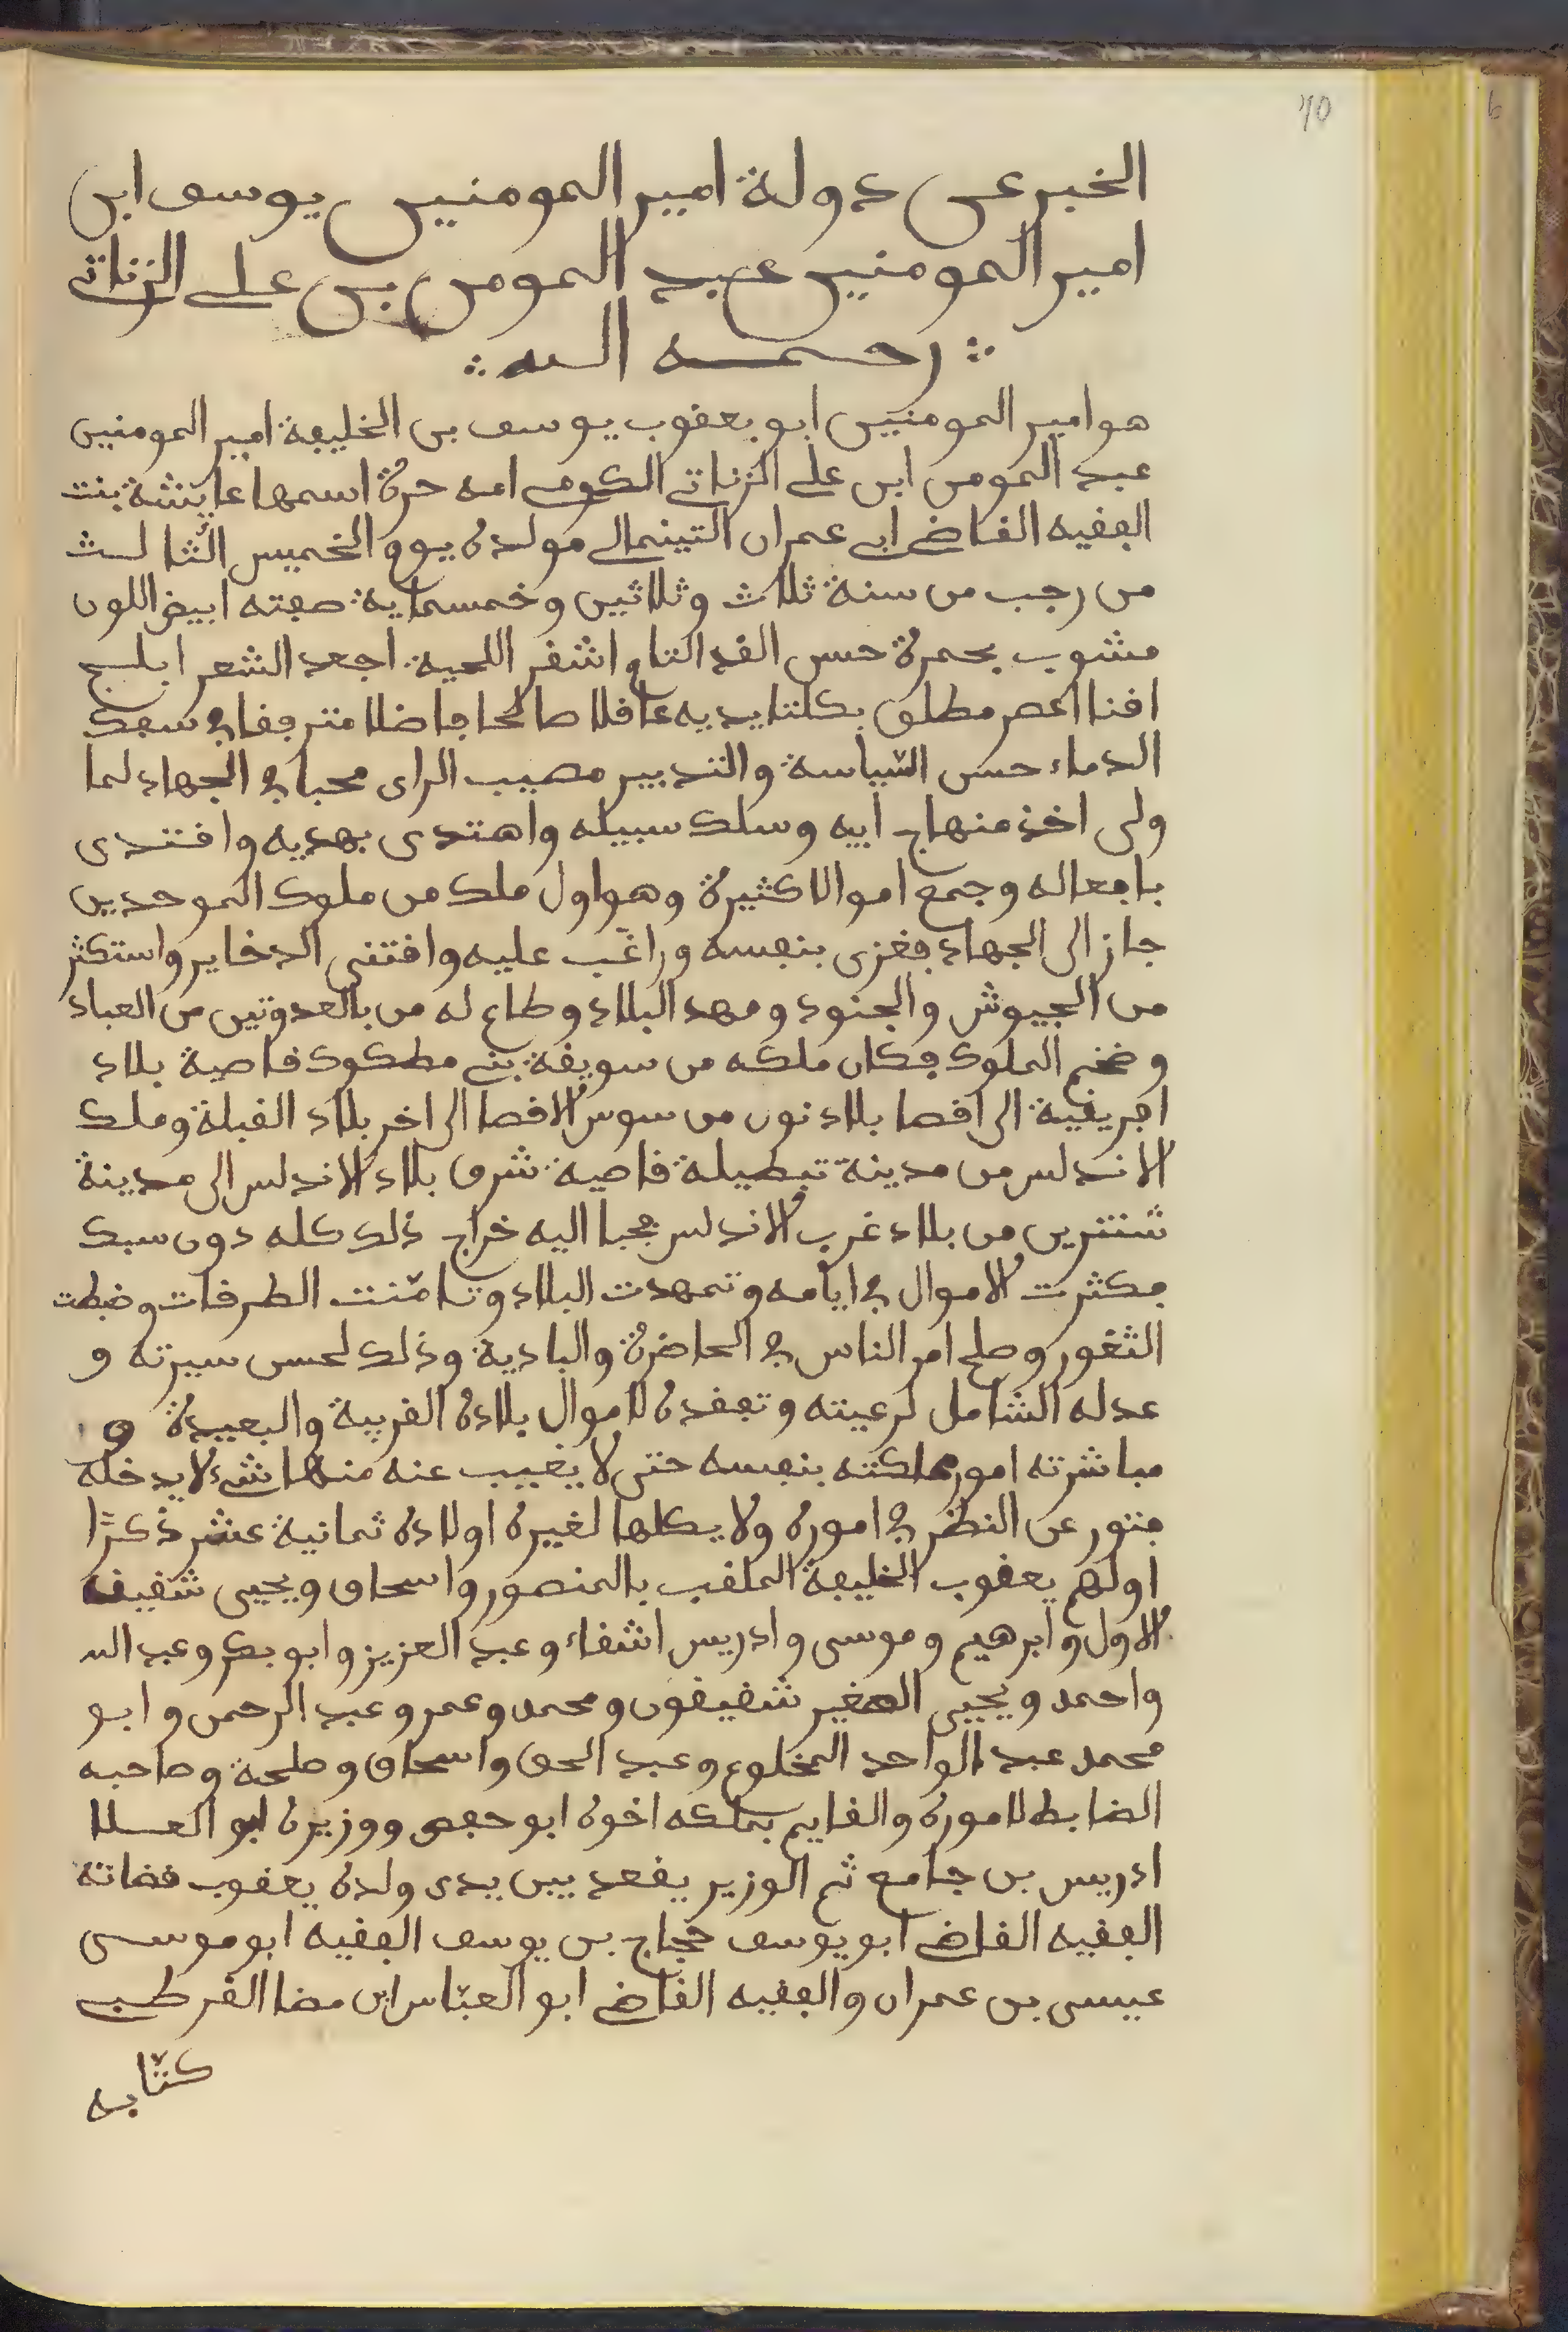 70
6
الخبر عن دولة امير المومنين يوسف ابن
امير المومنين عبد المومن بن على الزناتى
رحمه الله
هو امير المومنين ابو يعقوب يوسف بن الخليفة امير المومنين
عبد المومن ابن على الزناتى الكومى امه حرة اسمها عايشة بنت
الفقيه القاضى ابى عمران التينمالى مولده يوم الخميس الثالث
من رجب من سنة ثلاث وثلاثين وخمسماية صفته ابيض اللون
مشوب بحمرة حسن القد التام اشقر اللحية اجعد الشعر ابلج
اقنا اعصر مطلق بكلتا يديه عاقلا صالحا فاضلا مترفقا فى سفك
الدماء حسن السّياسة والتدبير مصيب الراى محبا فى الجهاد لما
ولى اخذ منهاج ابيه وسلك سبيله واهتدى بهديه واقتدى
بافعاله وجمع اموالا كثيرة وهو اول ملك من ملوك الموحدين
جاز الى الجهاد فغزى بنفسه وراغّب عليه واقتنى الدخاير واستكثر
من الجيوش والجنود ومهد البلاد وطاع له من بالعدوتين من العباد
وضخم الملوك فكان ملكه من سويقة بنى مطكوك قاصية بلاد
افريقية الى اقصا بلاد نون من سوس الاقصا الى اخر بلاد القبلة وملك
الاندلس من مدينة تبطيلة قاصية شرق بلاد الاندلس الى مدينة
شنترين من بلاد غرب الاندلس يجبا اليه خراج ذلك كله دون سبك
فكثرت الاموال فى ايامه وتمهدت البلاد وتامّنت الطرقات وضبطت
الثغور وصلح امر الناس فى الحاضرة والبادية وذلك لحسن سيرته و
عدله الشامل لرعيته وتفقده لاموال بلاده القريبة والبعيدة و
مباشرته امور مملكته بنفسه حتى لا يغيب عنه منها شىء لا يدخله
فتور عن النظر فى اموره ولا يكلها لغيره اولاده ثمانية عشر ذكرًا
اولهم يعقوب الخليفة الملقب بالمنصور واسحاق ويحيى شقيق
الاول وابرهيم وموسى وادريس اشقاء وعبد العزيز وابو بكر وعبد الله
واحمد ويحيى الصغير شقيقون ومحمد وعمر وعبد الرحمن وابو
محمد عبد الواحد المخلوع وعبد الحق واسحاق وطلحة وصاحبه
الضابط لاموره والقايم بملكه اخوه ابو حفص ووزيره ابو العلا
ادريس بن جامع ثم الوزير يقعد بين يدى ولده يعقوب قضاته
الفقيه القاضى ابو يوسف حجاج بن يوسف الفقيه ابو موسى
عيسى بن عمران والفقيه القاضى ابو العبّاس ابن مضا القرطبى
كتّابه